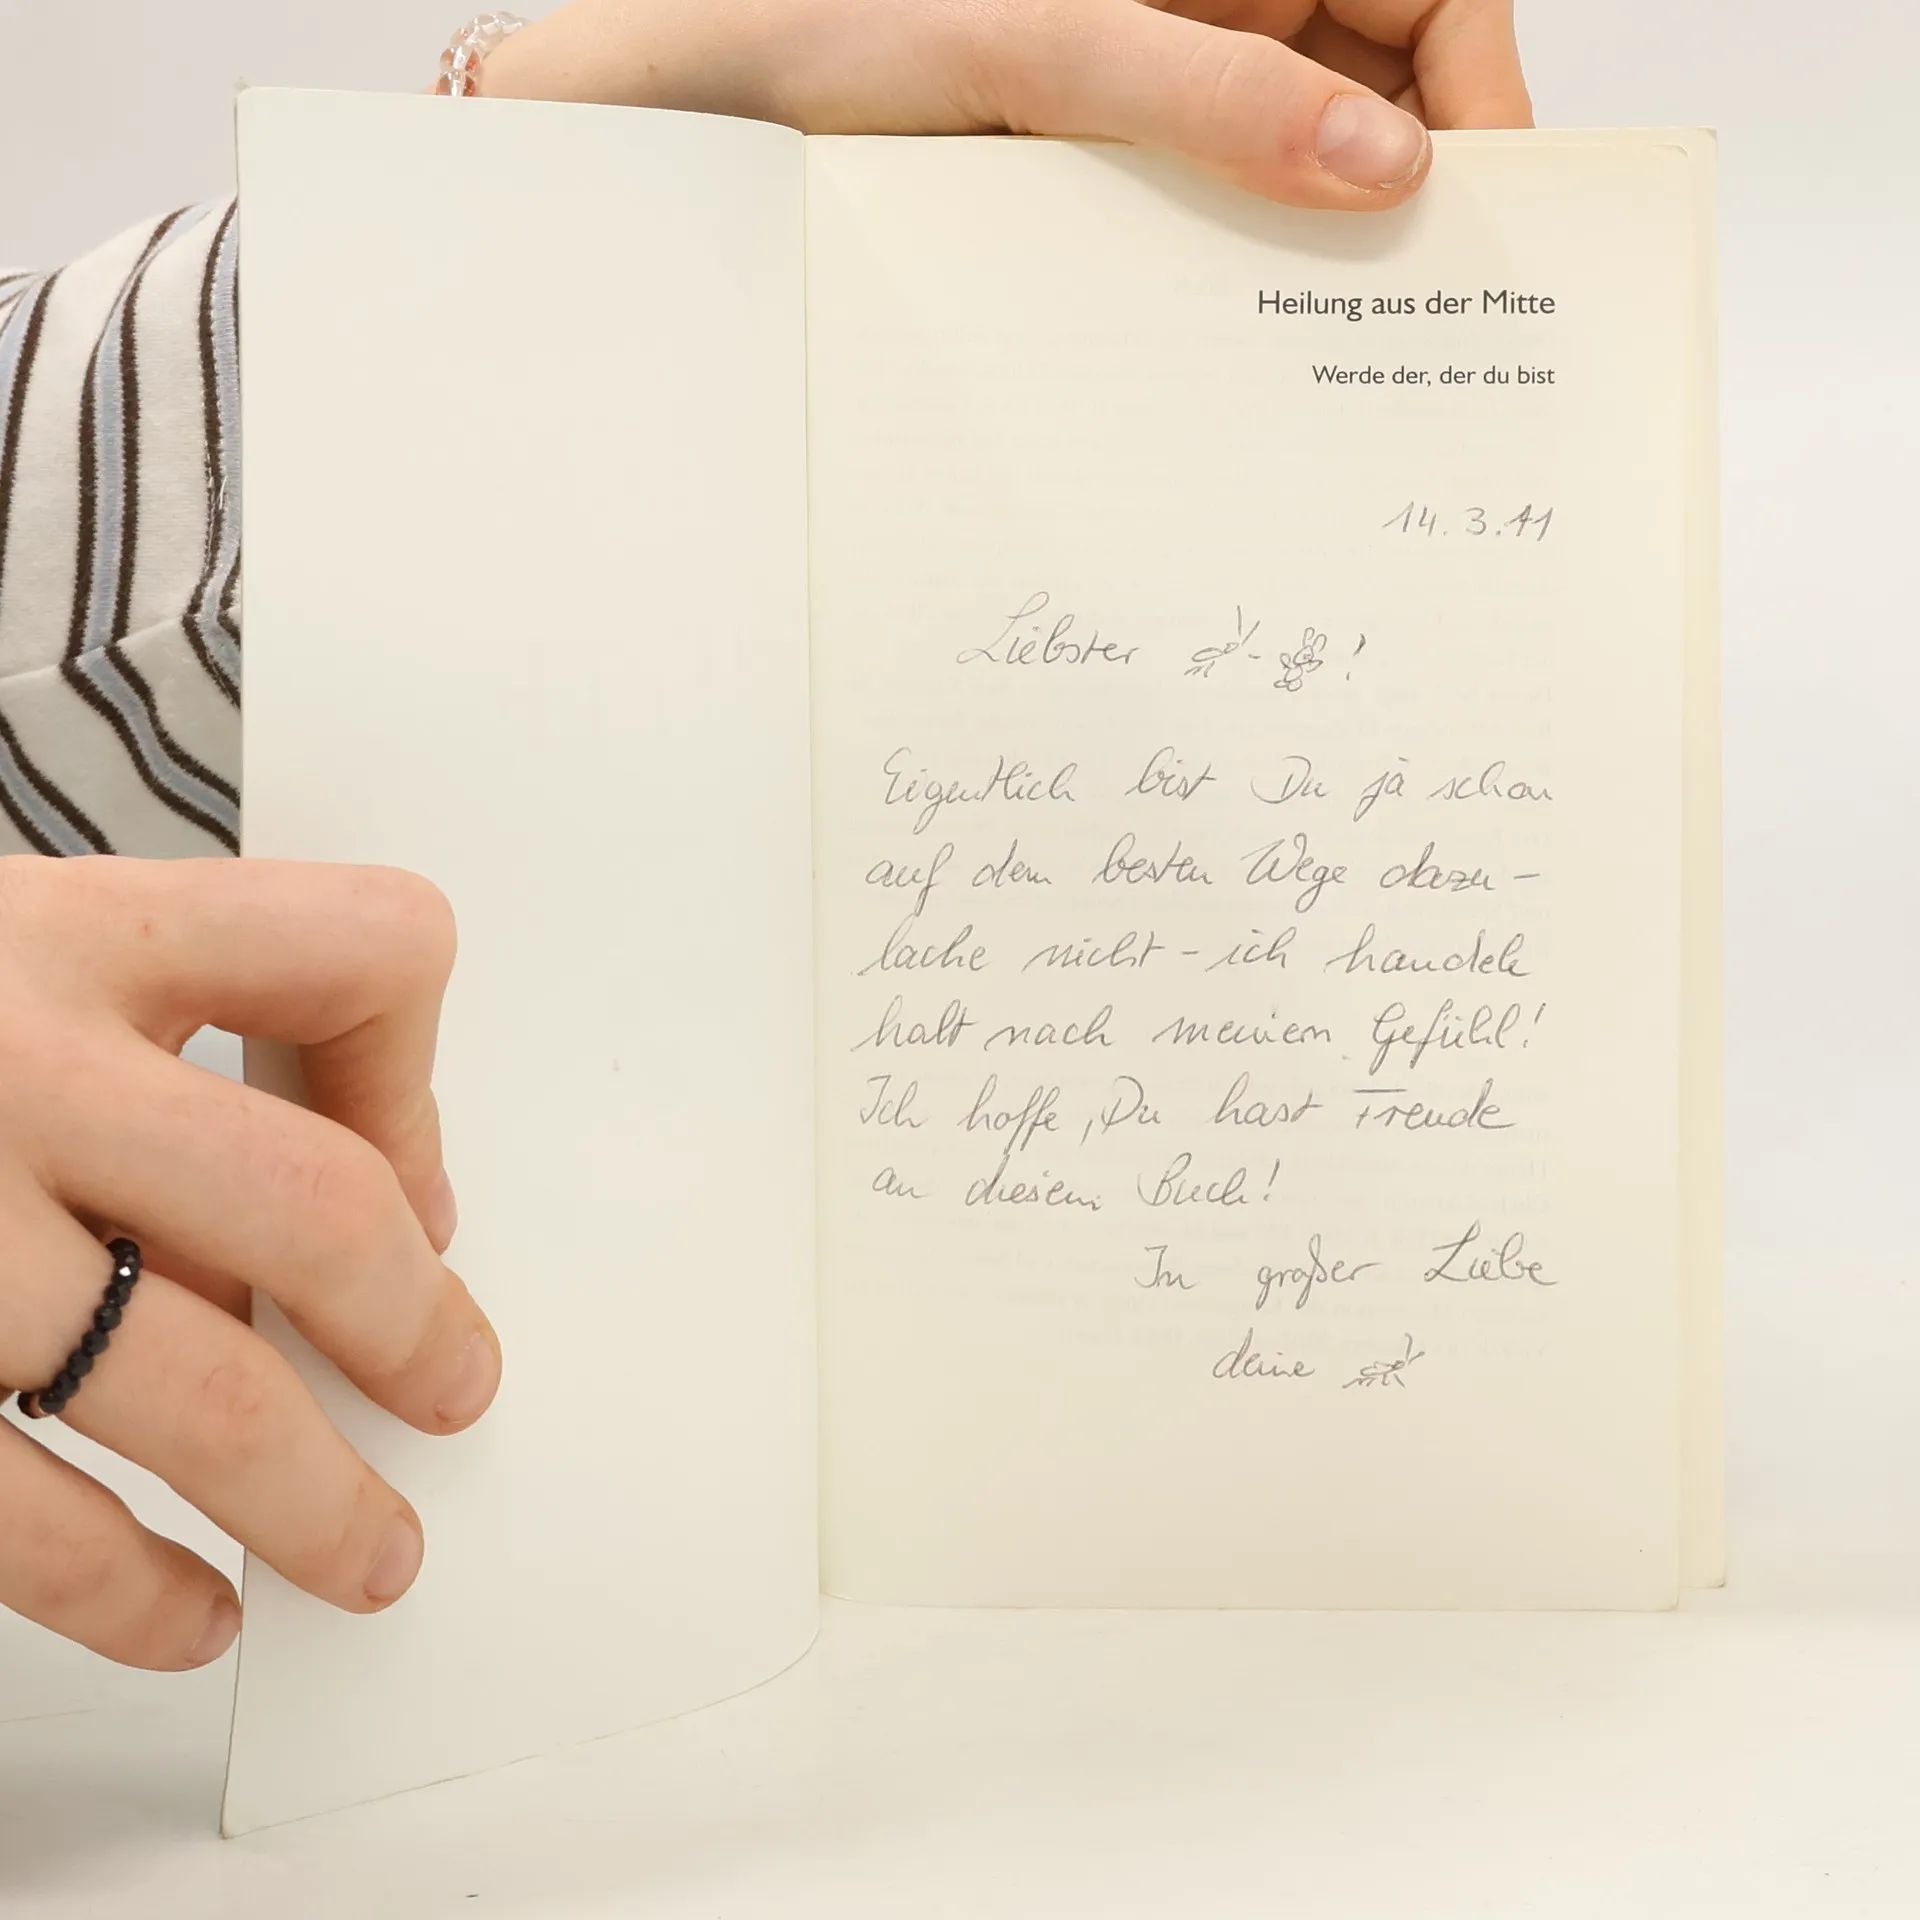 Heilung aus der Mitte
Werde der, der du bist
14.3.11
Liebster - !
Eigentlich bist Du ja schon
auf dem besten Wege dazu -
lache nicht - ich handele
halt nach meinem Gefühl!
Ich hoffe, Du hast Freude
an diesem Buch!
In großer Liebe
deine